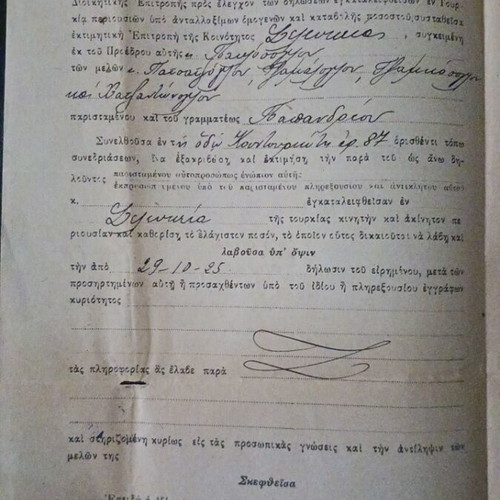 Διοικητικῆς Ἐπιτροπῆς πρὸς ἔλεγχον τῶν δηλώσεων ἐγκαταλειφθεισῶν ἐν Τουρ-
κίᾳ περιουσιῶν ὑπὸ ἀνταλλαξίμων ὁμογενῶν καὶ καταβολῆς ποσοστοῦ, συσταθεῖσα
ἐκτιμητικὴ Ἐπιτροπὴ τῆς Κοινότητος συγκειμένη
ἐκ τοῦ Προέδρου αὐτῆς
τῶν μελῶν κ.
καὶ
παρισταμένου καὶ τοῦ γραμματέως Παπανδρέου
Συνελθοῦσα ἐν τῇ ὁδῷ Κουντουριώτη ἀρ. 87 ὁρισθέντι τόπῳ
συνεδριάσεων, ἵνα ἐξακριβώσῃ καὶ ἐκτιμήσῃ, τὴν παρὰ τοῦ ὡς ἄνω δη-
λοῦντος παρισταμένου αὐτοπροσώπως ἐνώπιον αὐτῆς
ἐκπροσωπουμένου ὑπὸ τοῦ παρισταμένου πληρεξουσίου καὶ ἀντικλήτου αὐτοῦ
κ. ἐγκαταλειφθεῖσαν ἐν
τῆς τουρκίας κινητὴν καὶ ἀκίνητον πε-
ριουσίαν καὶ καθορίσῃ, τὸ ἐλάχιστον ποσόν, τὸ ὁποῖον οὗτος δικαιοῦται νὰ λάβῃ καὶ
λαβοῦσα ὑπ' ὄψιν
τὴν ἀπὸ 29-10-25 δήλωσιν τοῦ εἰρημένου, μετὰ τῶν
προσηρτημένων αὐτῇ ἢ προσαχθέντων ὑπὸ τοῦ ἰδίου ἢ πληρεξουσίου ἐγγράφων
κυριότητος
τὰς πληροφορίας ἃς ἔλαβε παρὰ
καὶ στηριζομένη κυρίως εἰς τὰς προσωπικὰς γνώσεις καὶ τὴν ἀντίληψιν τῶν
μελῶν της
Σκεφθεῖσα